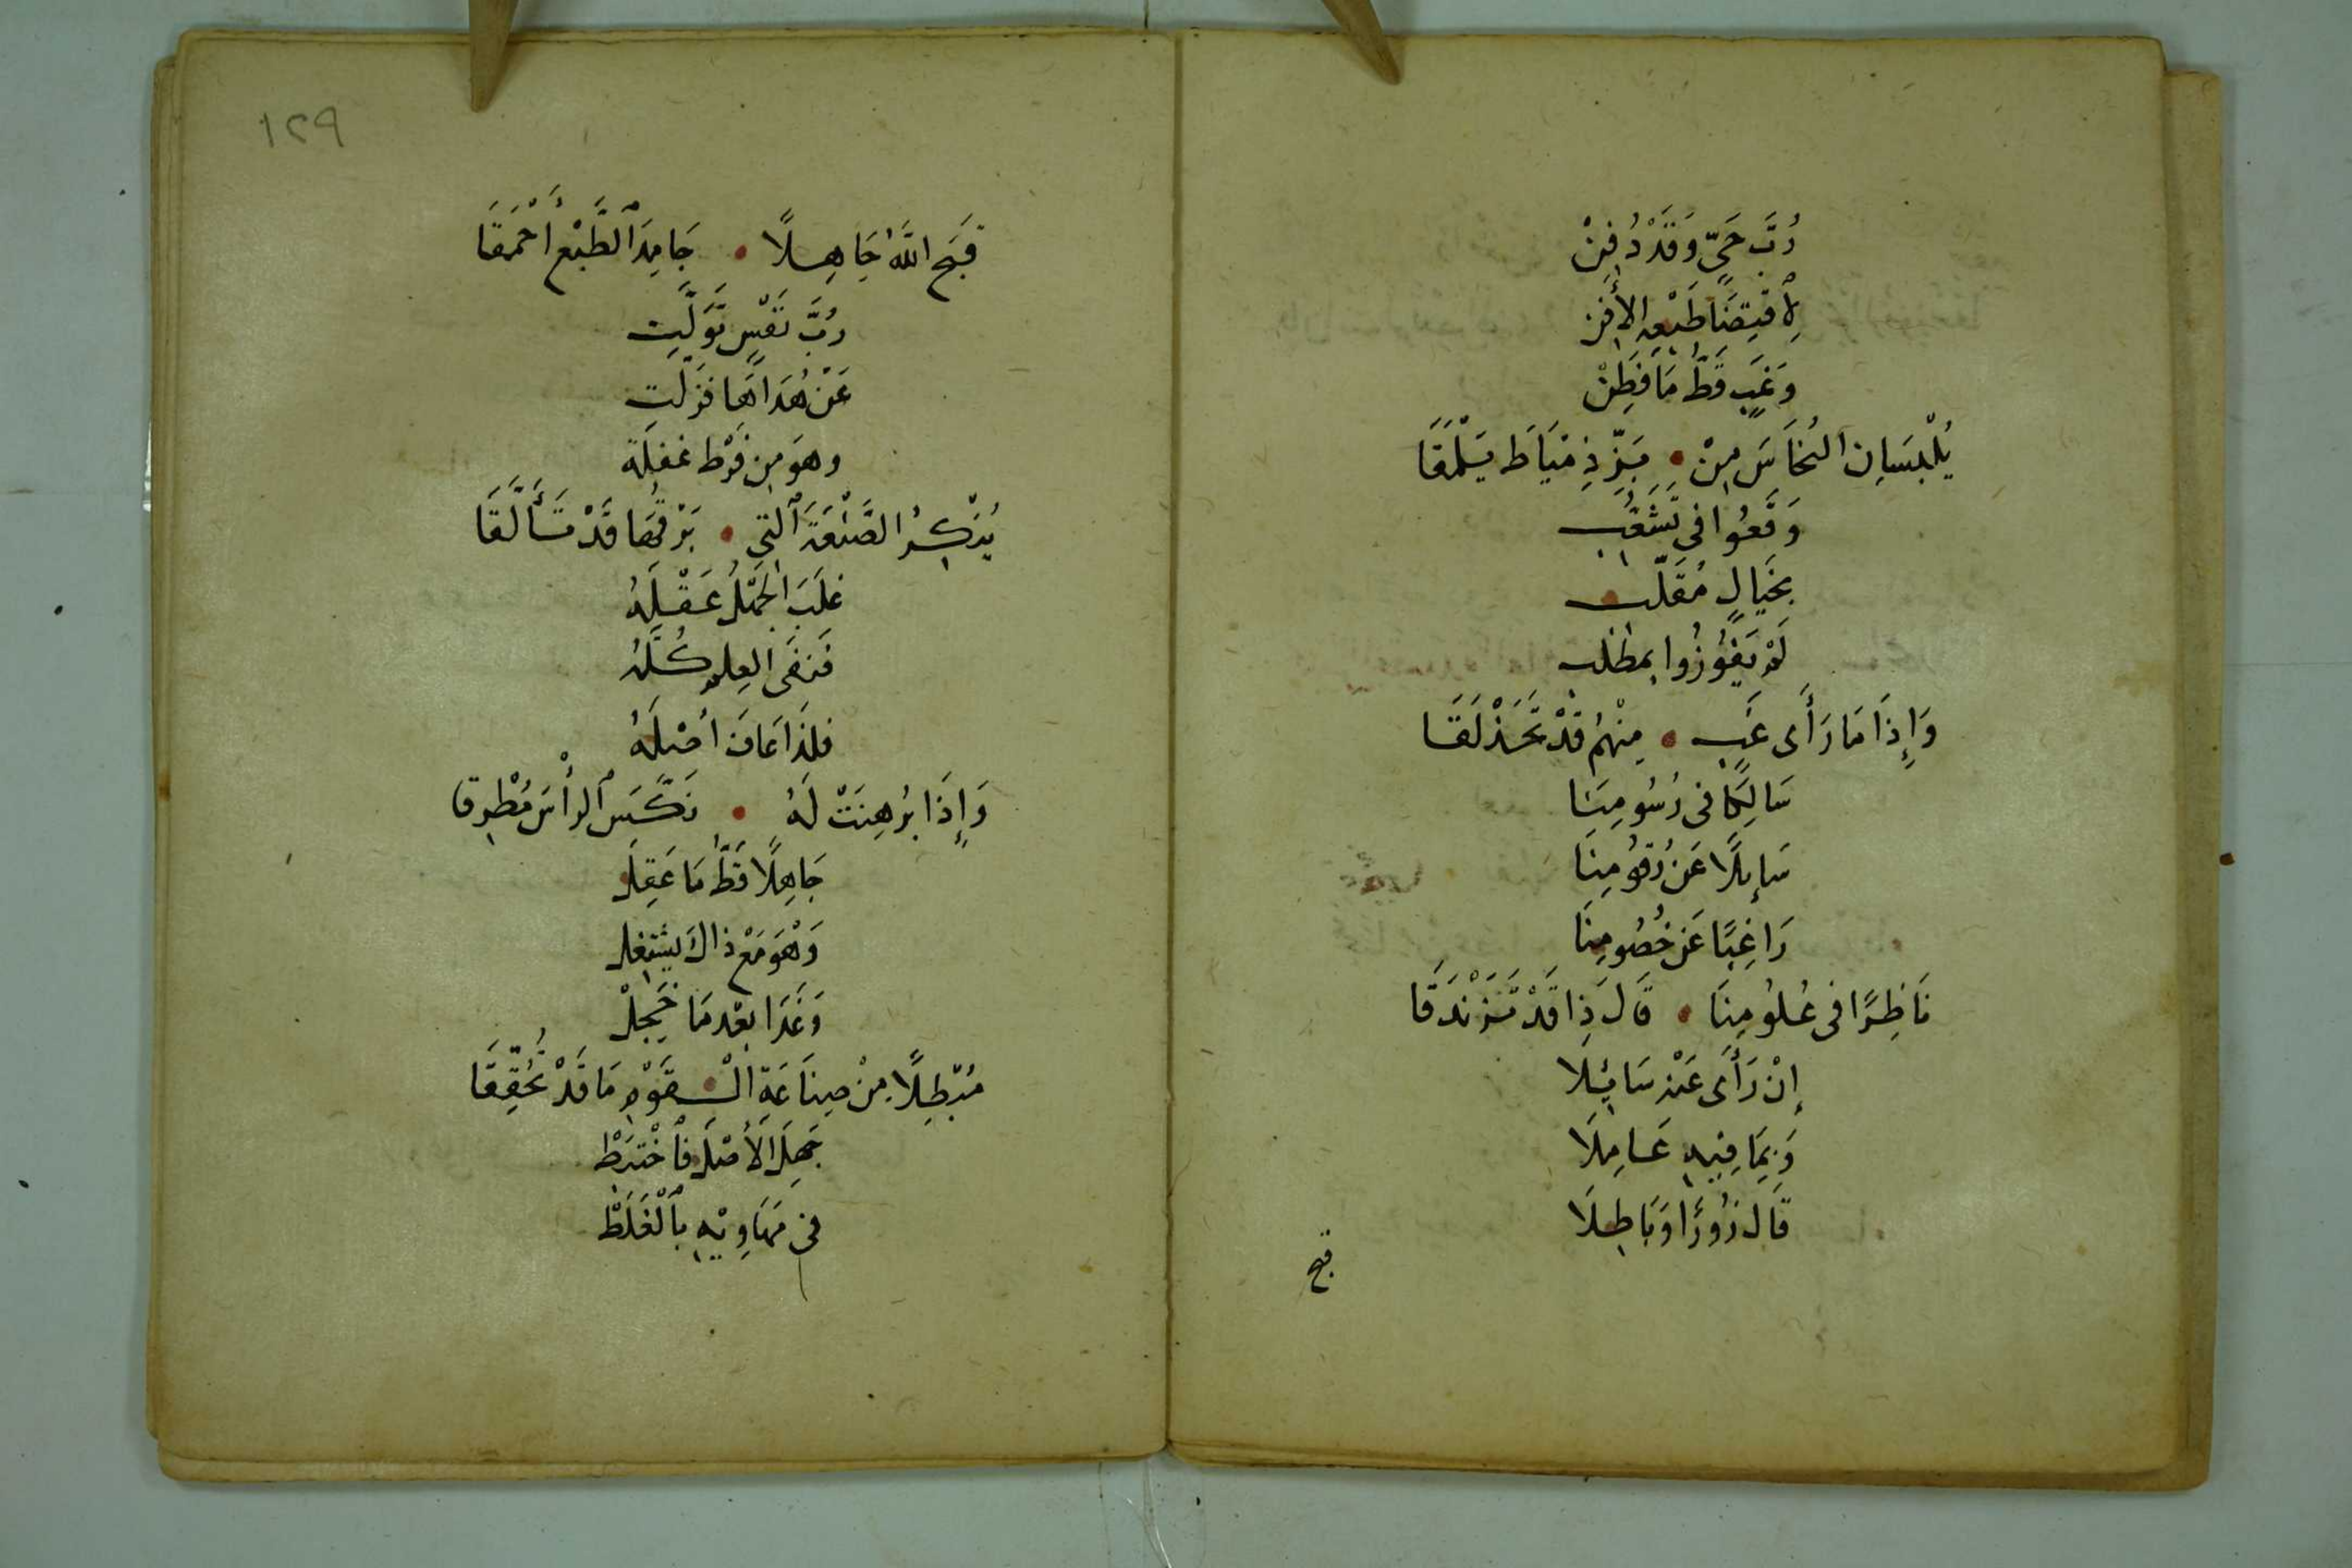 رُبَّ حَيٍّ وَقَدْ دُفِنْ
لِاقْتِضَا طَبْعِهِ الأَفِنْ
وَغَبٍ قَطُّ مَا فَطِنْ
يُلْبِسَانِ النُّحَاسَ مِنْ • بَزِّ ذِمْيَاطَ يَلْمَقَا
وَقَعُوا فِي تَشَعُّبِ
بِخَيَالٍ مُقَلَّبِ
لَمْ يَفُوزُوا بِمَطْلَبِ
وَإِذَا مَا رَأَى غَبٍ • مِنْهُمُ قَدْ تَحَذْلَقَا
سَالِكًا فِي رُسُومِنَا
سَائِلًا عَنْ رُقُومِنَا
رَاغِبًا عَنْ خُصُومِنَا
نَاظِرًا فِي عُلُومِنَا • قَالَ ذِا قَدْ تَزَنْدَقَا
إِنْ رَأَى عَنْهُ سَائِلَا
وَبِمَا فِيهِ عَامِلَا
قَالَ زُورًا وَبَاطِلَا
قبح
١٢٩
قَبَّحَ اللَّهُ جَاهِلًا • جَامِدَ الطَّبْعِ أَحْمَقَا
رُبَّ نَفْسٍ تَوَلَّتِ
عَنْ هُدَاهَا فَزَلَّتِ
وهوَ مِن فَرْطِ غفلَة
يُنكِرُ الصَّنْعَةَ الَّتِي • بَرْقُهَا قَدْ تَأَلَّقَا
غَلَبَ الجَهْلُ عَقْلَهُ
فَنَفَى العِلمَ كُلَّهُ
فلذَا عَافَ أَصْلَهُ
وَإِذَا بُرْهِنَتْ لَهُ • نَكَّسَ الرأْسَ مُطْرِقا
جَاهِلًا قَطُّ مَا عَقِلْ
وَهْوَ مَعْ ذاكَ يشْتغِلْ
وَغَدَا بَعْدمَا خَجِلْ
مُبْطِلًا مِنْ صِنَاعَةِ الْـ • ـقَوْمِ مَا قَدْ تُحُقِّقَا
جَهِلَ الأَصْلَ فاخْتَبَطْ
فِى مَهَاوِيْهِ بالْغَلَطْ